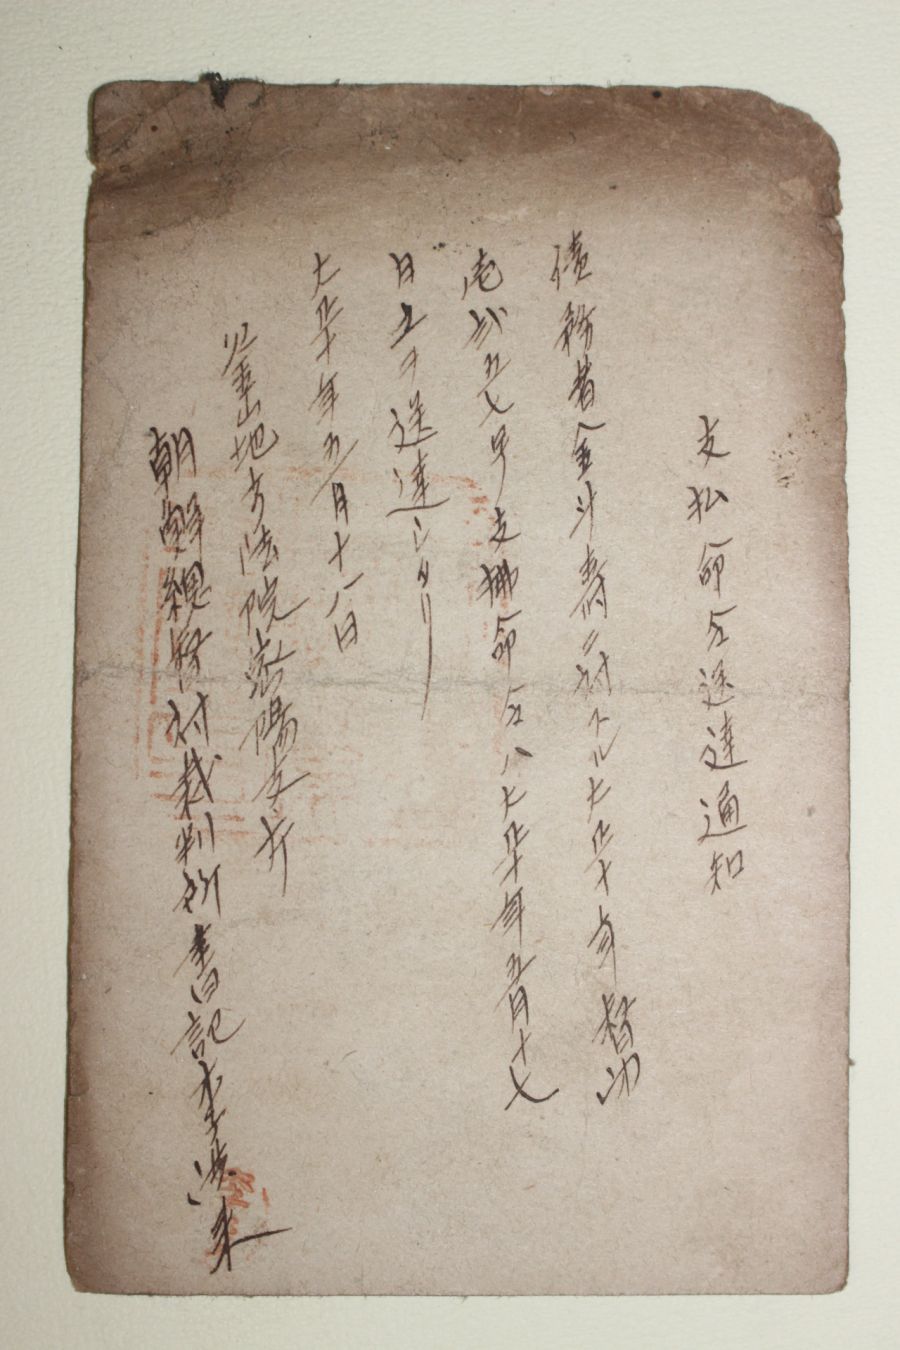 支払命令送達通知
債務者金斗壽ニ対スル大正十年督
第五七号支拂命令ハ大正十年五月十七
日之ヲ送達シタリ
大正十年五月十八日
釜山地方法院密陽支庁
朝鮮総督府裁判所書記李